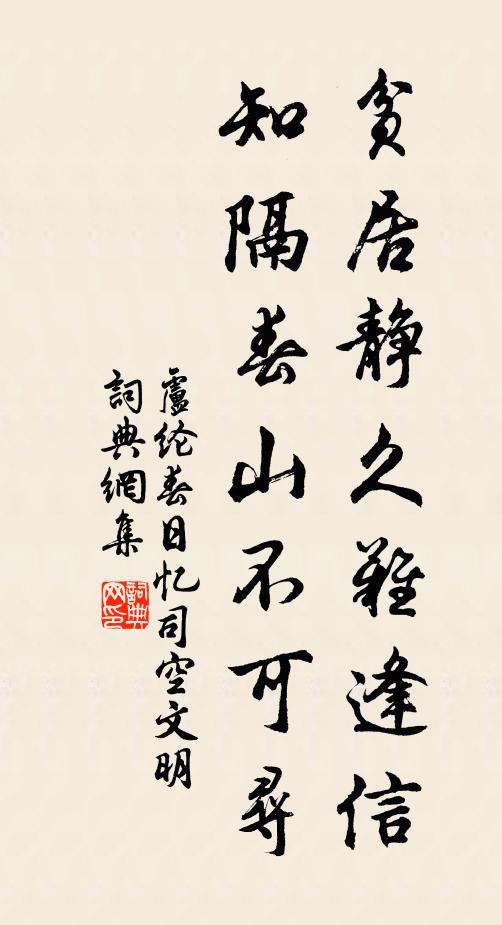 貧居靜久難逢信
知隔春山不可尋
盧纶春日忆司空文明
詞典網集
詞典网印